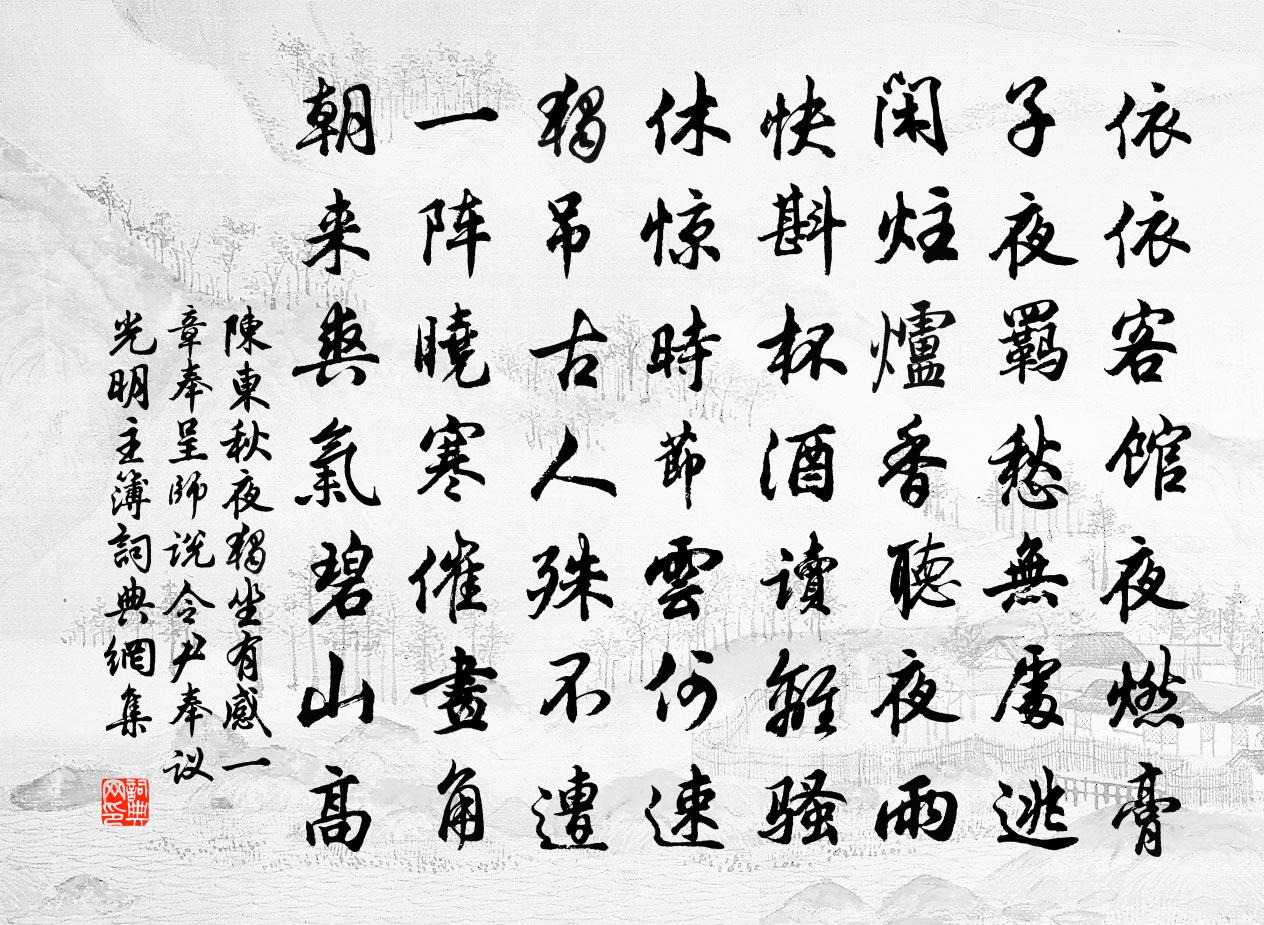 依依客馆夜燃膏
子夜羈愁無處逃
闲炷爐香聽夜雨
快斟杯酒讀離騷
休惊時節雲何速
獨吊古人殊不遭
一阵曉寒催畫角
朝来爽氣碧山高
陳東秋夜獨坐有感一
章奉呈師说令尹奉议
光明主簿詞典網集
詞典網印